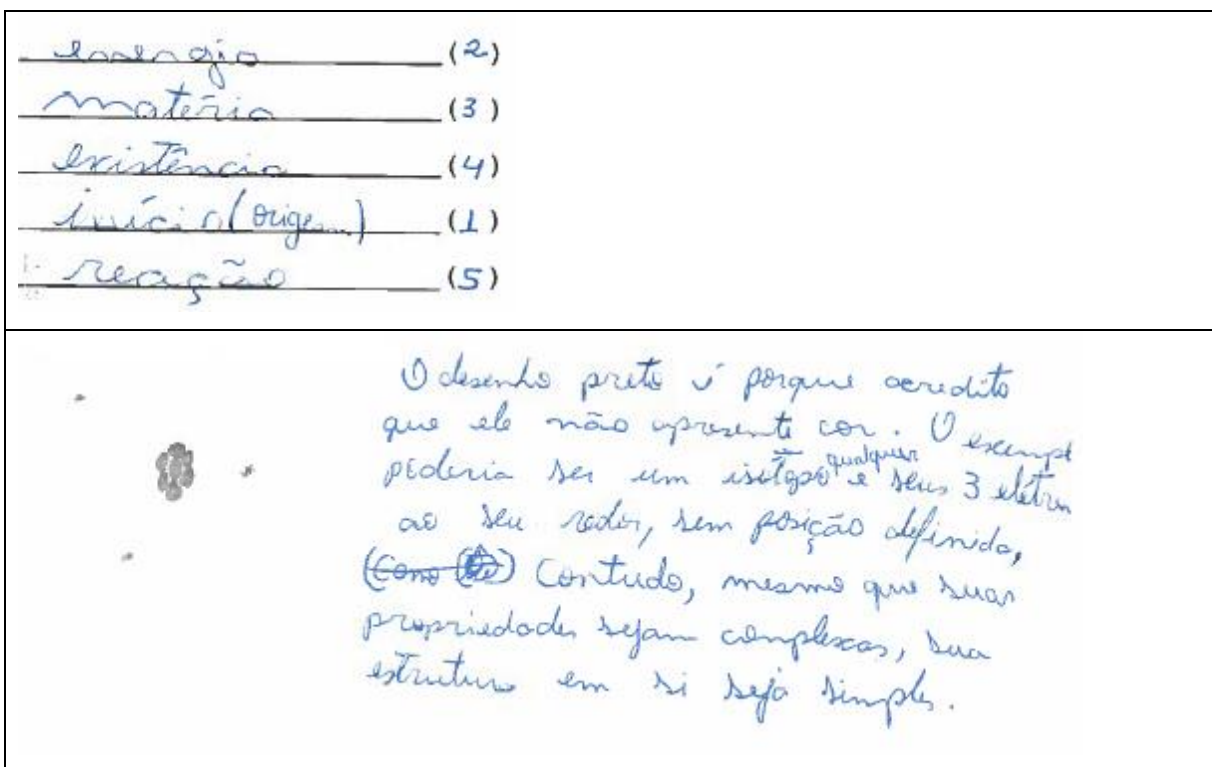 energia (2)
matéria (3)
existência (4)
início (origem) (1)
reação (5)
O desenho preto é porque acredito
que ele não apresente cor. O exempl
poderia ser um isótopo qualquer e seus 3 elétron
ao seu redor, sem posição definida,
(Como Contudo, mesmo que suas
propriedades sejam complexas, sua
estrutura em si seja simples.